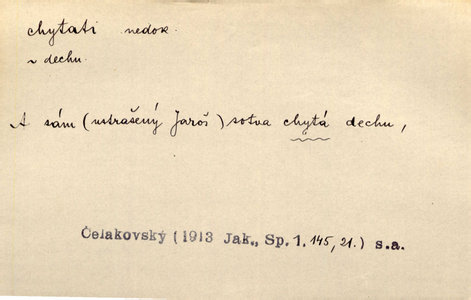 chytati nedok.
~ dechu.
A sám (ustrašený Jaroš) sotva chytá dechu,
Čelakovský (1913 Jak., Sp. 1. 145, 21.) s.a.